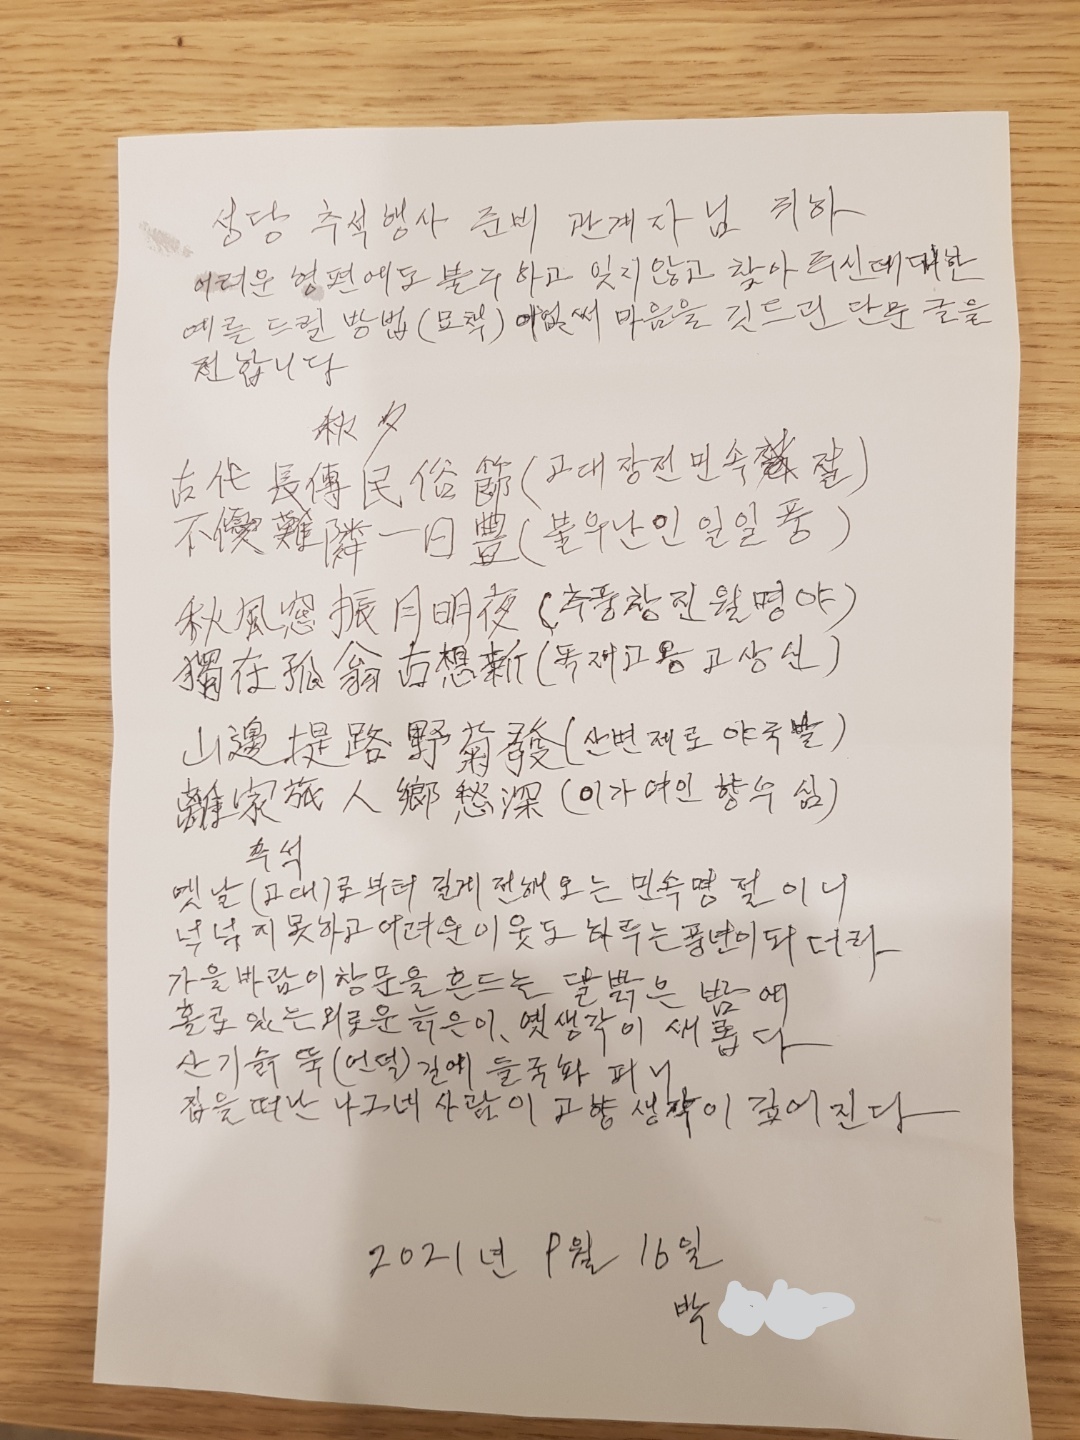 성당 추석행사 준비 관계자님 귀하
어려운 형편에도 불구하고 잊지않고 찾아주신데 대한
예를 드릴 방법(묘책) 없써 마음을 깃드린 단문 글을
전합니다
秋夕
古代長傳民俗節(고대장전민속절)
不優難隣一日豊(불우난인일일풍)
秋風窓振月明夜(추풍창진월명야)
獨在孤翁古想新(독재고옹고상신)
山邊堤路野菊發(산변제로야국발)
離家旅人鄕愁深(이가여인향수심)
추석
옛날(고대)로부터 길게 전해오는 민속명절이니
넉넉지못하고 어려운이웃도 하루는풍년이되더라
가을바람이창문을흔드는 달밝은 밤에
홀로있는외로운늙은이, 옛생각이 새롭다
산기슭 뚝(언덕)길에 들국화 피니
집을떠난 나그네사람이 고향생각이 깊어진다
2021년 9월 16일
박